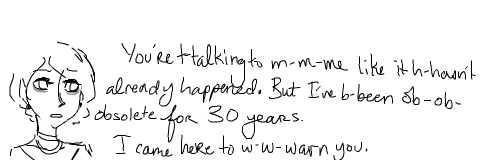 You're t-talking to m-m-me like it h-hasn't
already happened. But I've b-been ob-ob-
obsolete for 30 years.
I came here to w-w-warn you.